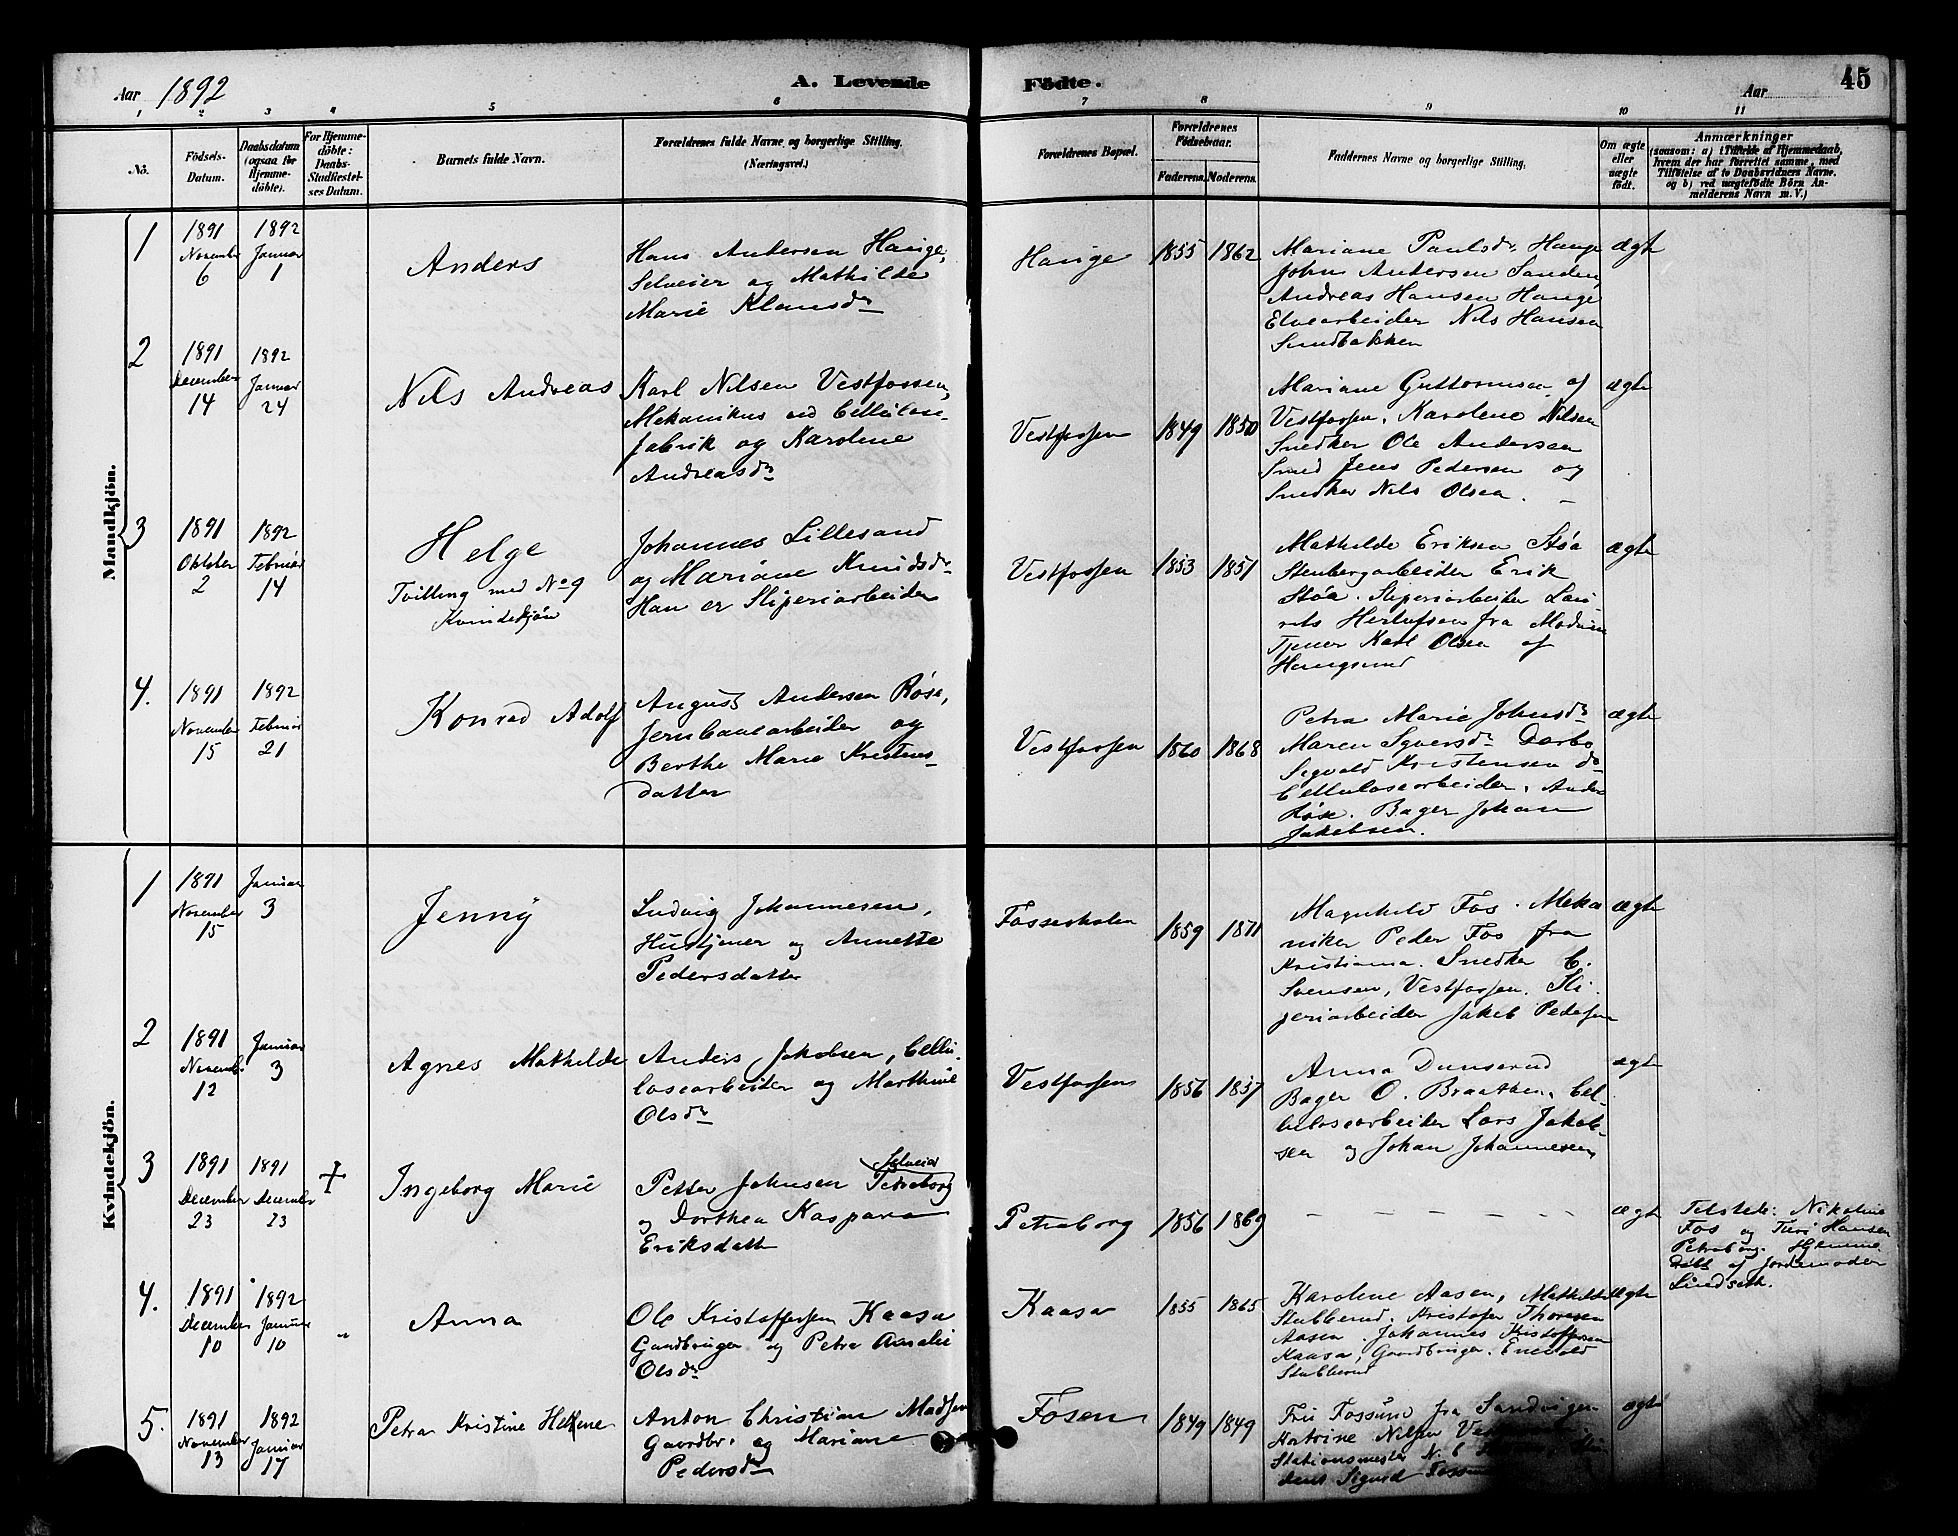 Aar 1892
A. Levende
Födte.
Aar
45
1 2 3 4 5 6 7 8 9 10 11
No.
Födsels-
Datum.
Daabsdatum
(ogsaa för
Hjemme-
döbte).
For Hjemme-
döbte:
Daabs-
Stadfæstel-
ses Datum.
Barnets fulde Navn.
Forældrenes fulde Navne og borgerlige Stilling.
(Næringsvei.)
Forældrenes Bopæl.
Forældrenes
Födselsaar.
Faderens. Moderens.
Faddernes Navne og borgerlige Stilling.
Om ægte
eller
uægte
födt.
Anmærkninger
(saasom: a) i Tilfælde af Hjemmedaab,
hvem der har forrettet samme, med
Tilföielse af to Daabsvidners Navne,
og b) ved uægtefödte Börn An-
melderens Navn m. V.)
Mandkjön.
1
1891
November
6
1892
Januar
1
Anders
Hans Andersen Hauge,
Selveier og Mathilde
Marie Klausdr
Hauge
1855
1862
Mariane Paulsdr Hauge
John Andersen Sanden,
Andreas Hansen Hauge
Elvearbeider Nils Hansen
Smedbakken
ægte
2
1891
December
14
1892
Januar
24
Nils Andreas
Karl Nilsen Vestfossen,
Mekanikus ved Cellulose-
fabrik og Karoline
Andreasdr
Vestfossen
1849
1850
Mariane Guttormsen af
Vestfossen. Karolene Nilsen
Snedker Ole Andersen
Smed Jens Pedersen og
Snedker Nils Olsen.
ægte
3
1891
Oktober
2
1892
Februar
14
Helge
Tvilling med No 9
Kvindekjön
Johannes Lillesand
og Mariane Knudsdr
Han er Sliperiarbeider
Vestfossen
1853
1851
Mathilde Eriksen Stöa
Stenbergarbeider Erik
Stöa. Sliperiarbeider Lau-
rits Herlufsen fra Modum
Tjener Karl Olsen af
Haugsund
ægte
4.
1891
November
15
1892
Februar
21
Konrad Adolf
August Andersen Röse,
Jernbanearbeider og
Berthe Marie Kristens-
datter
Vestfossen
1860
1868
Petra Marie Johnsdr
Maren Syversdr Darbo
Sigvald Kristensen do
Cellulosearbeider. Anders
Röse. Bager Johan
Jakobsen.
ægte
Kvindekjön.
1
1891
November
15
Januar
3
Jenny
Ludvig Johannesen,
Hustjener og Annette
Pedersdatter
Fosseskolen
1859
1871
Magnhild Fos. Meka
niker Peder Fos fra
Kristiania. Snedker C.
Svensen, Vestfossen. Sli-
periarbeider Jakob Pedersen
ægte
2
1891
Novemb.
12
Januar
3
Agnes Mathilde
Anders Jakobsen, Cellu-
losearbeider og Marthine
Olsdr
Vestfossen
1856
1857
Anna Dunserud
Bager O. Braathen. Cel-
lulosearbeider Lars Jakob-
sen og Johan Johannesen
ægte
3
1891
December
23
1891
December
23
+
Ingeborg Marie
Selveier
Petter Johnsen Petraborg
og Dorthea Kaspara
Eriksdatter
Petraborg
1856
1869
– – – – – –
ægte
Tilstede: Nikoline
Fos og Turi Hansen
Petraborg. Hjemme
döbt af Jordemoder
Lindseth.
4.
1891
December
10
1892
Januar
10
"
Anna
Ole Kristoffersen Kaasa
Gaardbruger og Petra Amalie
Olsdr
Kaasa
1855
1865
Karolene Aasen, Mathilde
Stubberud. Kristofer Thoresen
Aasen. Johannes Kristoffersen
Kaasa, Gaardbruger. Enevold
Stubberud
ægte
5.
1891
November
13
1892
Januar
17
Petra Kristine Helene
Anton Christian Madsen
Gaardbr. og Mariane
Pedersdr
Fosen
1849
1849
Fru Fossund fra Sandvigen
Katrine Nilsen
Stationsmester N. C.
Sigurd
ægte